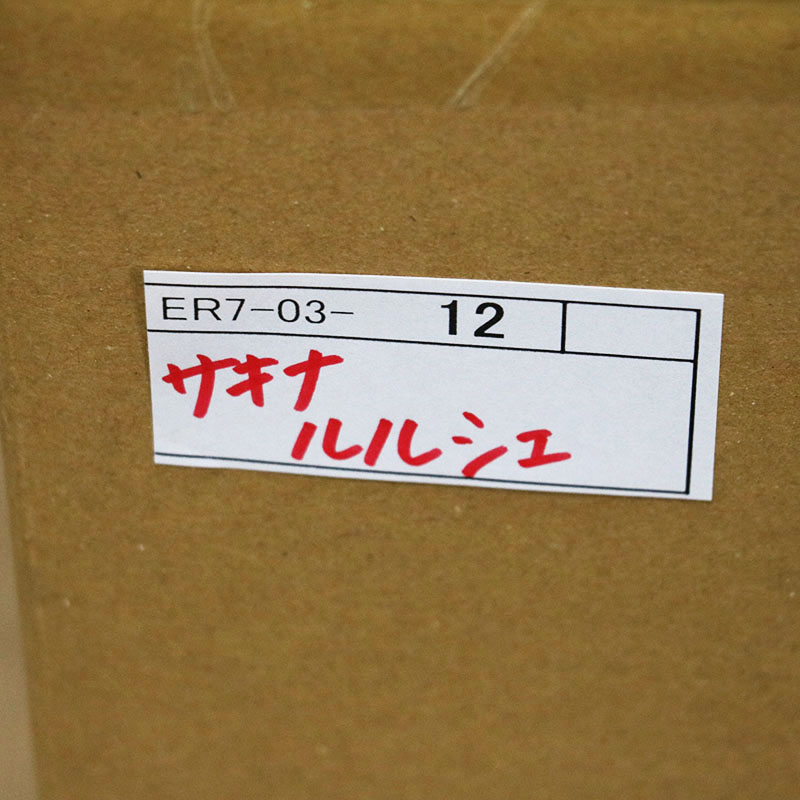 ER7-03- 12
サキナ
ルルシェ